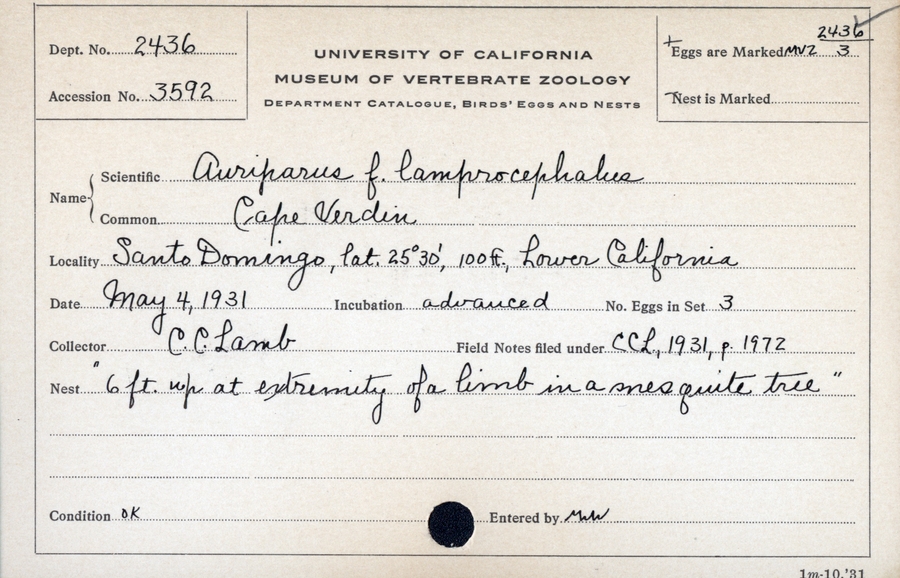 Dept. No. 2436
Accession No. 3592
UNIVERSITY OF CALIFORNIA
MUSEUM OF VERTEBRATE ZOOLOGY
DEPARTMENT CATALOGUE, BIRDS' EGGS AND NESTS
Eggs are Marked MVZ 2436/3
Nest is Marked
Name { Scientific Auriparus f. lamprocephalus
Common Cape Verdin
Locality Santo Domingo, lat. 25°30', 100 ft., Lower California
Date May 4, 1931 Incubation advanced No. Eggs in Set 3
Collector C. C. Lamb Field Notes filed under CCL, 1931, p. 1972
Nest "6 ft. up at extremity of a limb in a mesquite tree"
Condition OK Entered by
1m-10,'31